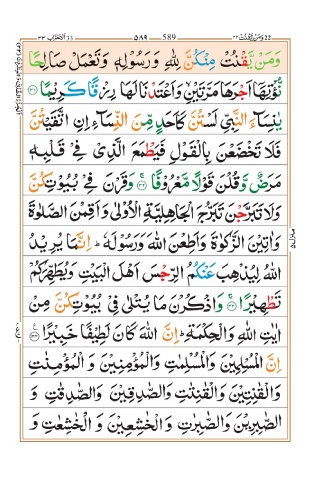 وَمَنْ يَّقْنُتْ مِنْكُنَّ لِلّٰهِ وَرَسُوْلِهٖ وَتَعْمَلْ صَالِحًا
نُّؤْتِهَآ اَجْرَهَا مَرَّتَيْنِ وَاَعْتَدْنَا لَهَا رِزْقًا كَرِيْمًا ۝۳۱
يٰنِسَآءَ النَّبِيِّ لَسْتُنَّ كَاَحَدٍ مِّنَ النِّسَآءِ اِنِ اتَّقَيْتُنَّ
فَلَا تَخْضَعْنَ بِالْقَوْلِ فَيَطْمَعَ الَّذِيْ فِيْ قَلْبِهٖ
مَرَضٌ وَّقُلْنَ قَوْلًا مَّعْرُوْفًا ۝۳۲ وَقَرْنَ فِيْ بُيُوْتِكُنَّ
وَلَا تَبَرَّجْنَ تَبَرُّجَ الْجَاهِلِيَّةِ الْاُوْلٰى وَاَقِمْنَ الصَّلٰوةَ
وَاٰتِيْنَ الزَّكٰوةَ وَاَطِعْنَ اللّٰهَ وَرَسُوْلَهٗ ؕ اِنَّمَا يُرِيْدُ
اللّٰهُ لِيُذْهِبَ عَنْكُمُ الرِّجْسَ اَهْلَ الْبَيْتِ وَيُطَهِّرَكُمْ
تَطْهِيْرًا ۝۳۳ وَاذْكُرْنَ مَا يُتْلٰى فِيْ بُيُوْتِكُنَّ مِنْ
اٰيٰتِ اللّٰهِ وَالْحِكْمَةِ ؕ اِنَّ اللّٰهَ كَانَ لَطِيْفًا خَبِيْرًا ۝۳۴
اِنَّ الْمُسْلِمِيْنَ وَالْمُسْلِمٰتِ وَالْمُؤْمِنِيْنَ وَ الْمُؤْمِنٰتِ
وَالْقٰنِتِيْنَ وَالْقٰنِتٰتِ وَالصّٰدِقِيْنَ وَالصّٰدِقٰتِ وَ
الصّٰبِرِيْنَ وَالصّٰبِرٰتِ وَالْخٰشِعِيْنَ وَ الْخٰشِعٰتِ وَ